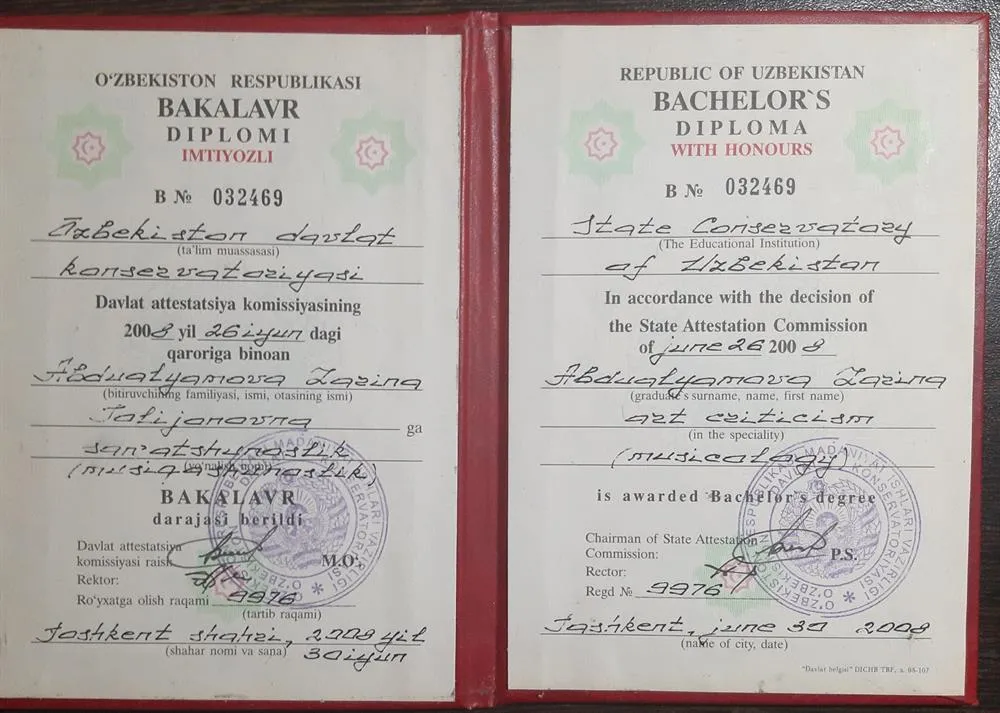 O‘ZBEKISTON RESPUBLIKASI
BAKALAVR
DIPLOMI
IMTIYOZLI
B № 032469
Ozbekiston davlat
(ta’lim muassasasi)
konservatoriyasi
Davlat attestatsiya komissiyasining
2008 yil 26 iyun dagi
qaroriga binoan
Abdualyamova Zarina
(bitiruvchining familiyasi, ismi, otasining ismi)
Talijanovna ga
san'atshunaslik
(yo‘nalish nomi)
(musiqashunaslik)
BAKALAVR
darajasi berildi
Davlat attestatsiya
komissiyasi raisi
M.O‘.
Rektor:
Ro‘yxatga olish raqami 9976
(tartib raqami)
Tashkent shahri, 2008 yil
(shahar nomi va sana)
30 iyun
REPUBLIC OF UZBEKISTAN
BACHELOR`S
DIPLOMA
WITH HONOURS
B № 032469
State Conservatory
(The Educational Institution)
of Uzbekistan
In accordance with the decision of
the State Attestation Commission
of june 26 2008
Abdualyamova Zarina
(graduate's surname, name, first name)
art criticism
(in the speciality)
(musicology)
is awarded Bachelor's degree
Chairman of State Attestation
Commission:
P.S.
Rector:
Regd № 9976
Tashkent, june 30 2008
(name of city, date)
"Davlat belgisi" DICHB TBF, z. 08-107